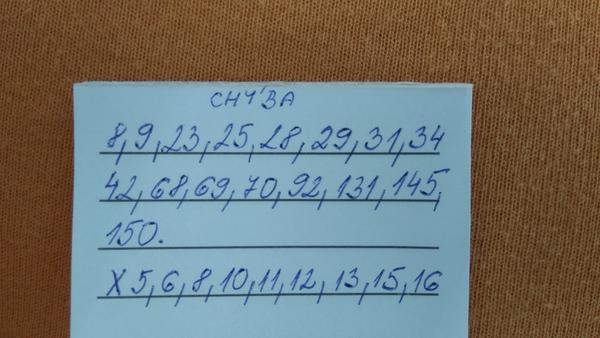 СНЧ'ВА
8,9,23,25,28,29,31,34
42,68,69,70,92,131,145,
150.
X 5,6,8,10,11,12,13,15,16